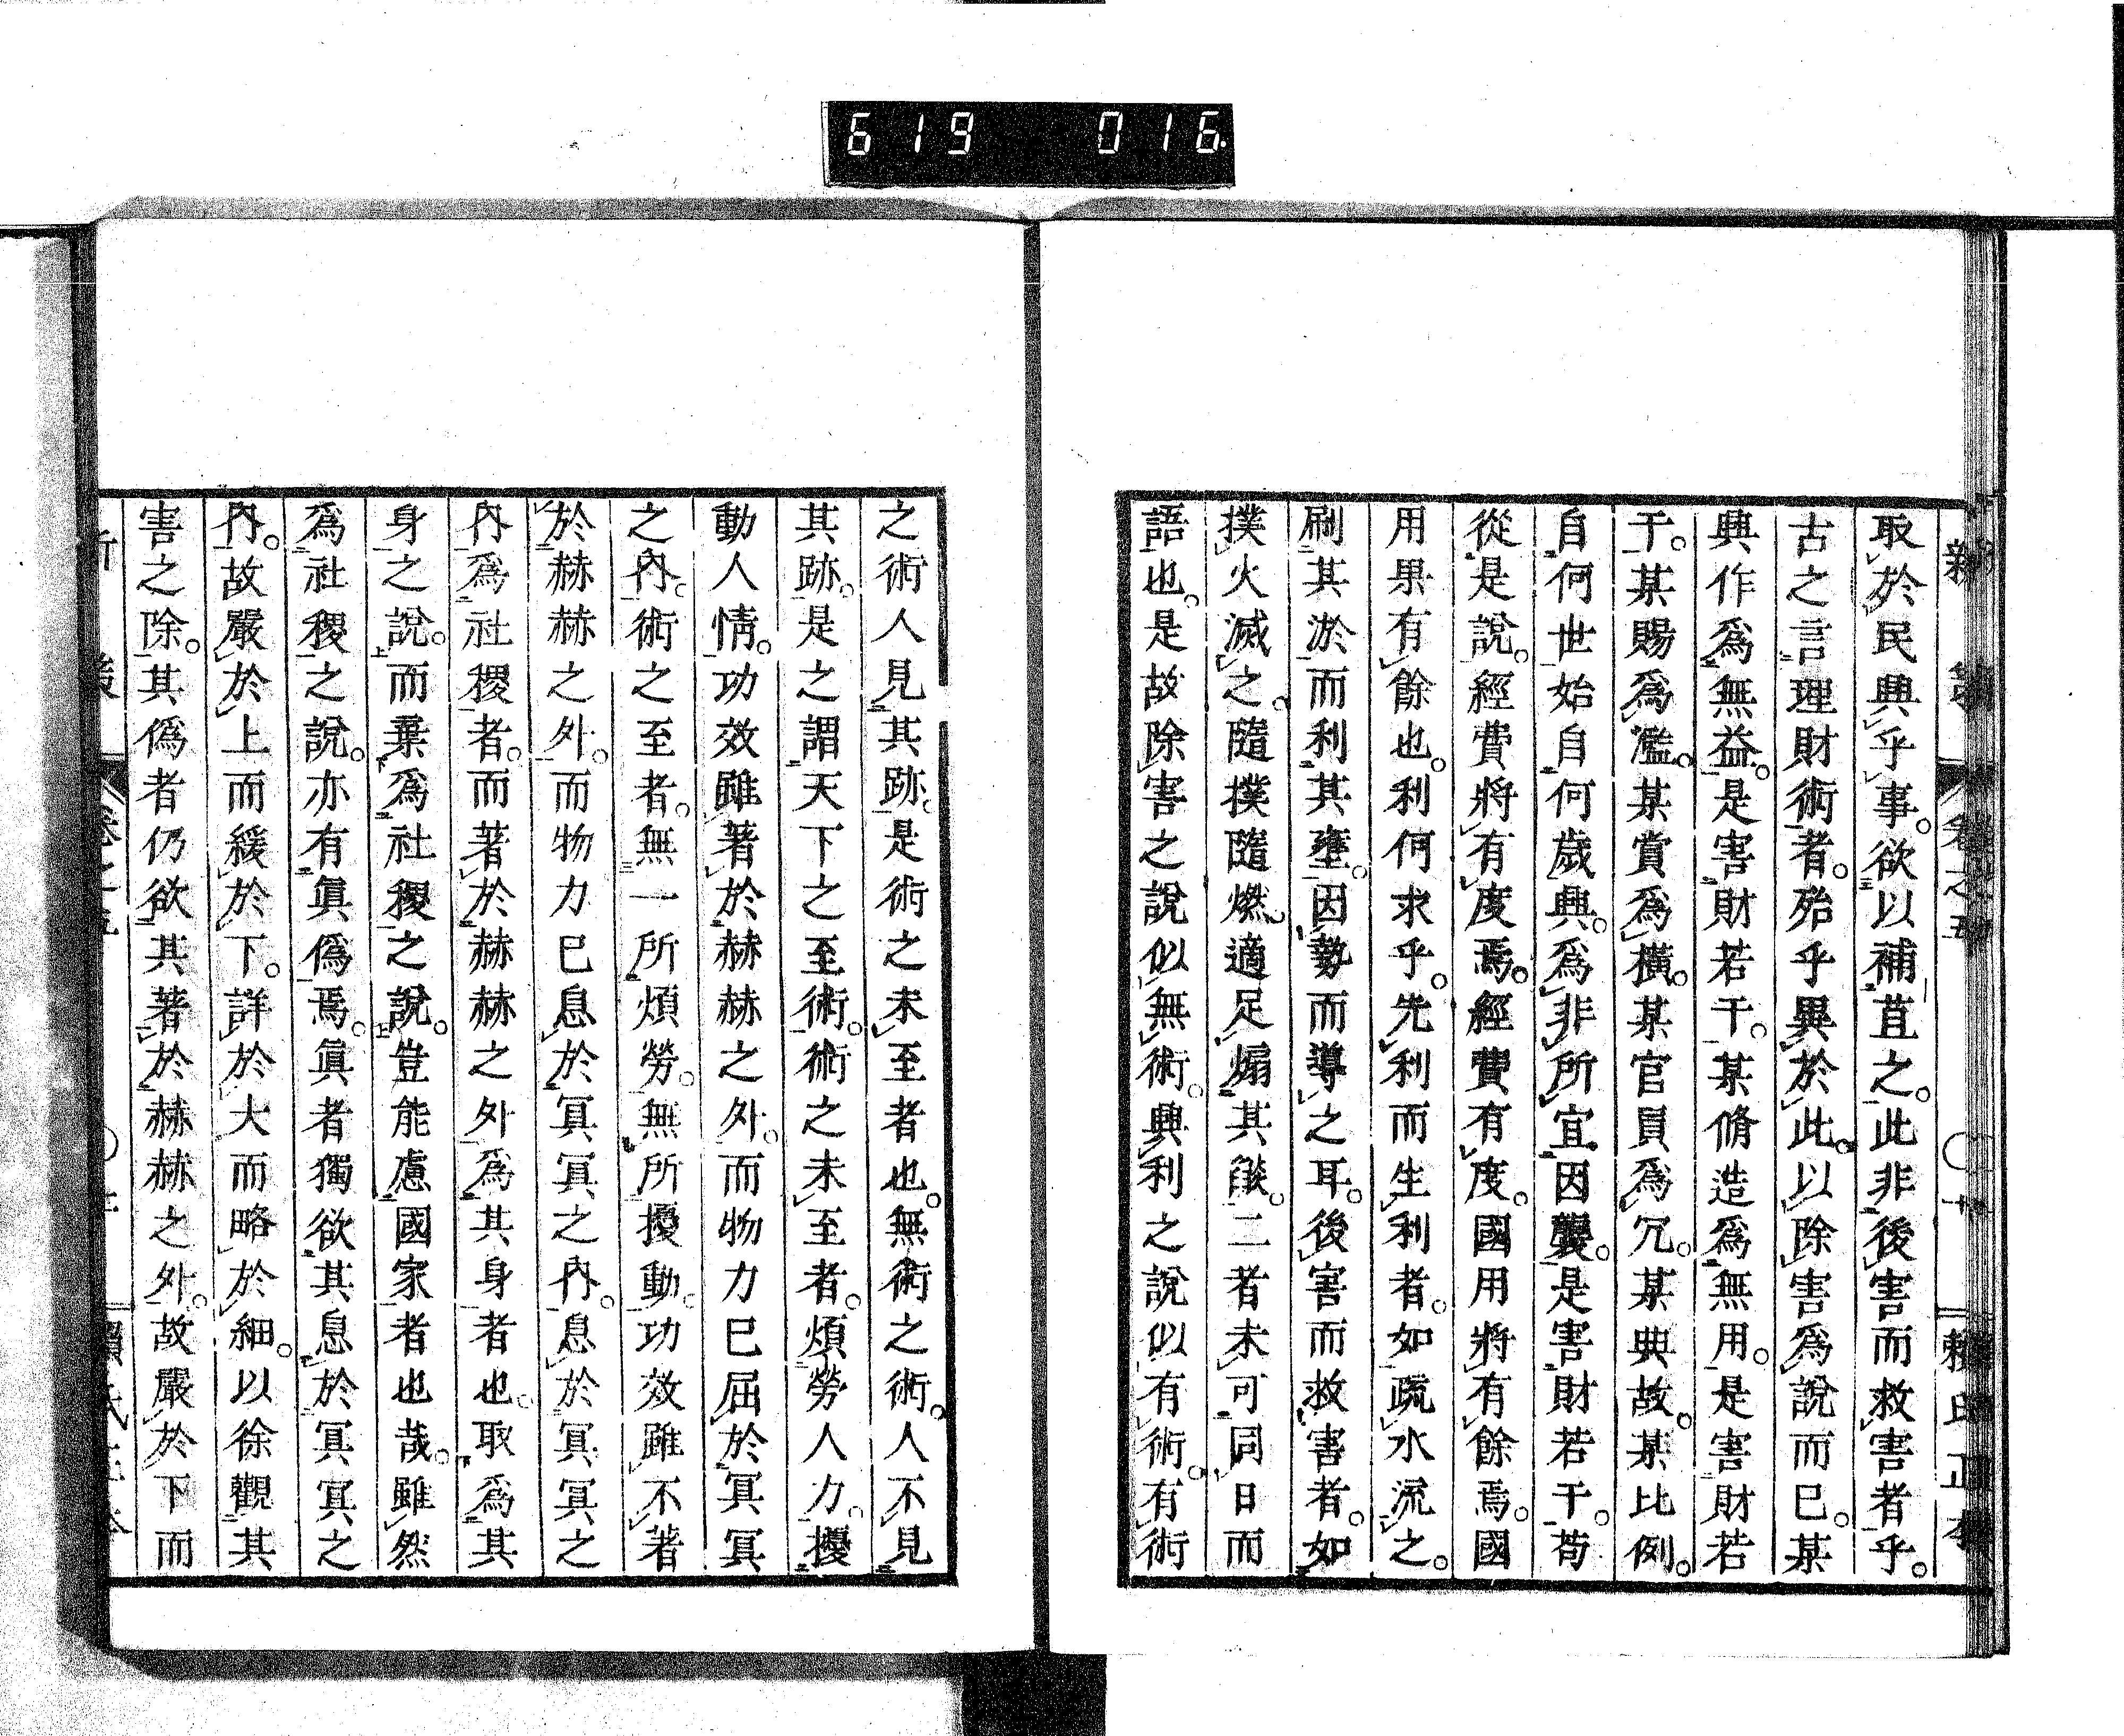 619 016
新策 卷之五 ○ 賴氏正本
取於民與乎事。欲以補苴之。此非後害而救害者乎。
古之言理財術者。殆乎異於此。以除害爲說而已。某
興作爲無益。是害財若干。某脩造爲無用。是害財若
干。某賜爲濫。某賞爲橫。某官員爲冗。某典故。某比例。
自何世始自何歲興。爲非所宜因襲。是害財若干。苟
從是說。經費將有度焉。經費有度。國用將有餘焉。國
用果有餘也。利何求乎。先利而生利者。如疏水流之。
刷其淤而利其壅。因勢而導之耳。後害而救害者。如
撲火滅之。隨撲隨燃。適足煽其燄。二者未可同日而
語也。是故除害之說似無術。興利之說似有術。有術
之術人見其跡。是術之未至者也。無術之術。人不見
其跡。是之謂天下之至術。術之未至者。煩勞人力。擾
動人情。功效雖著於赫赫之外。而物力已屈於冥冥
之內。術之至者。無一所煩勞。無所擾動。功效雖不著
於赫赫之外。而物力已息於冥冥之內。息於冥冥之
內。爲社稷者。而著於赫赫之外爲其身者也。取爲其
身之說。而棄爲社稷之說。豈能慮國家者也哉。雖然
爲社稷之說。亦有眞僞焉。眞者獨欲其息於冥冥之
內。故嚴於上而緩於下。詳於大而略於細。以徐觀其
害之除。其僞者仍欲其著於赫赫之外。故嚴於下而